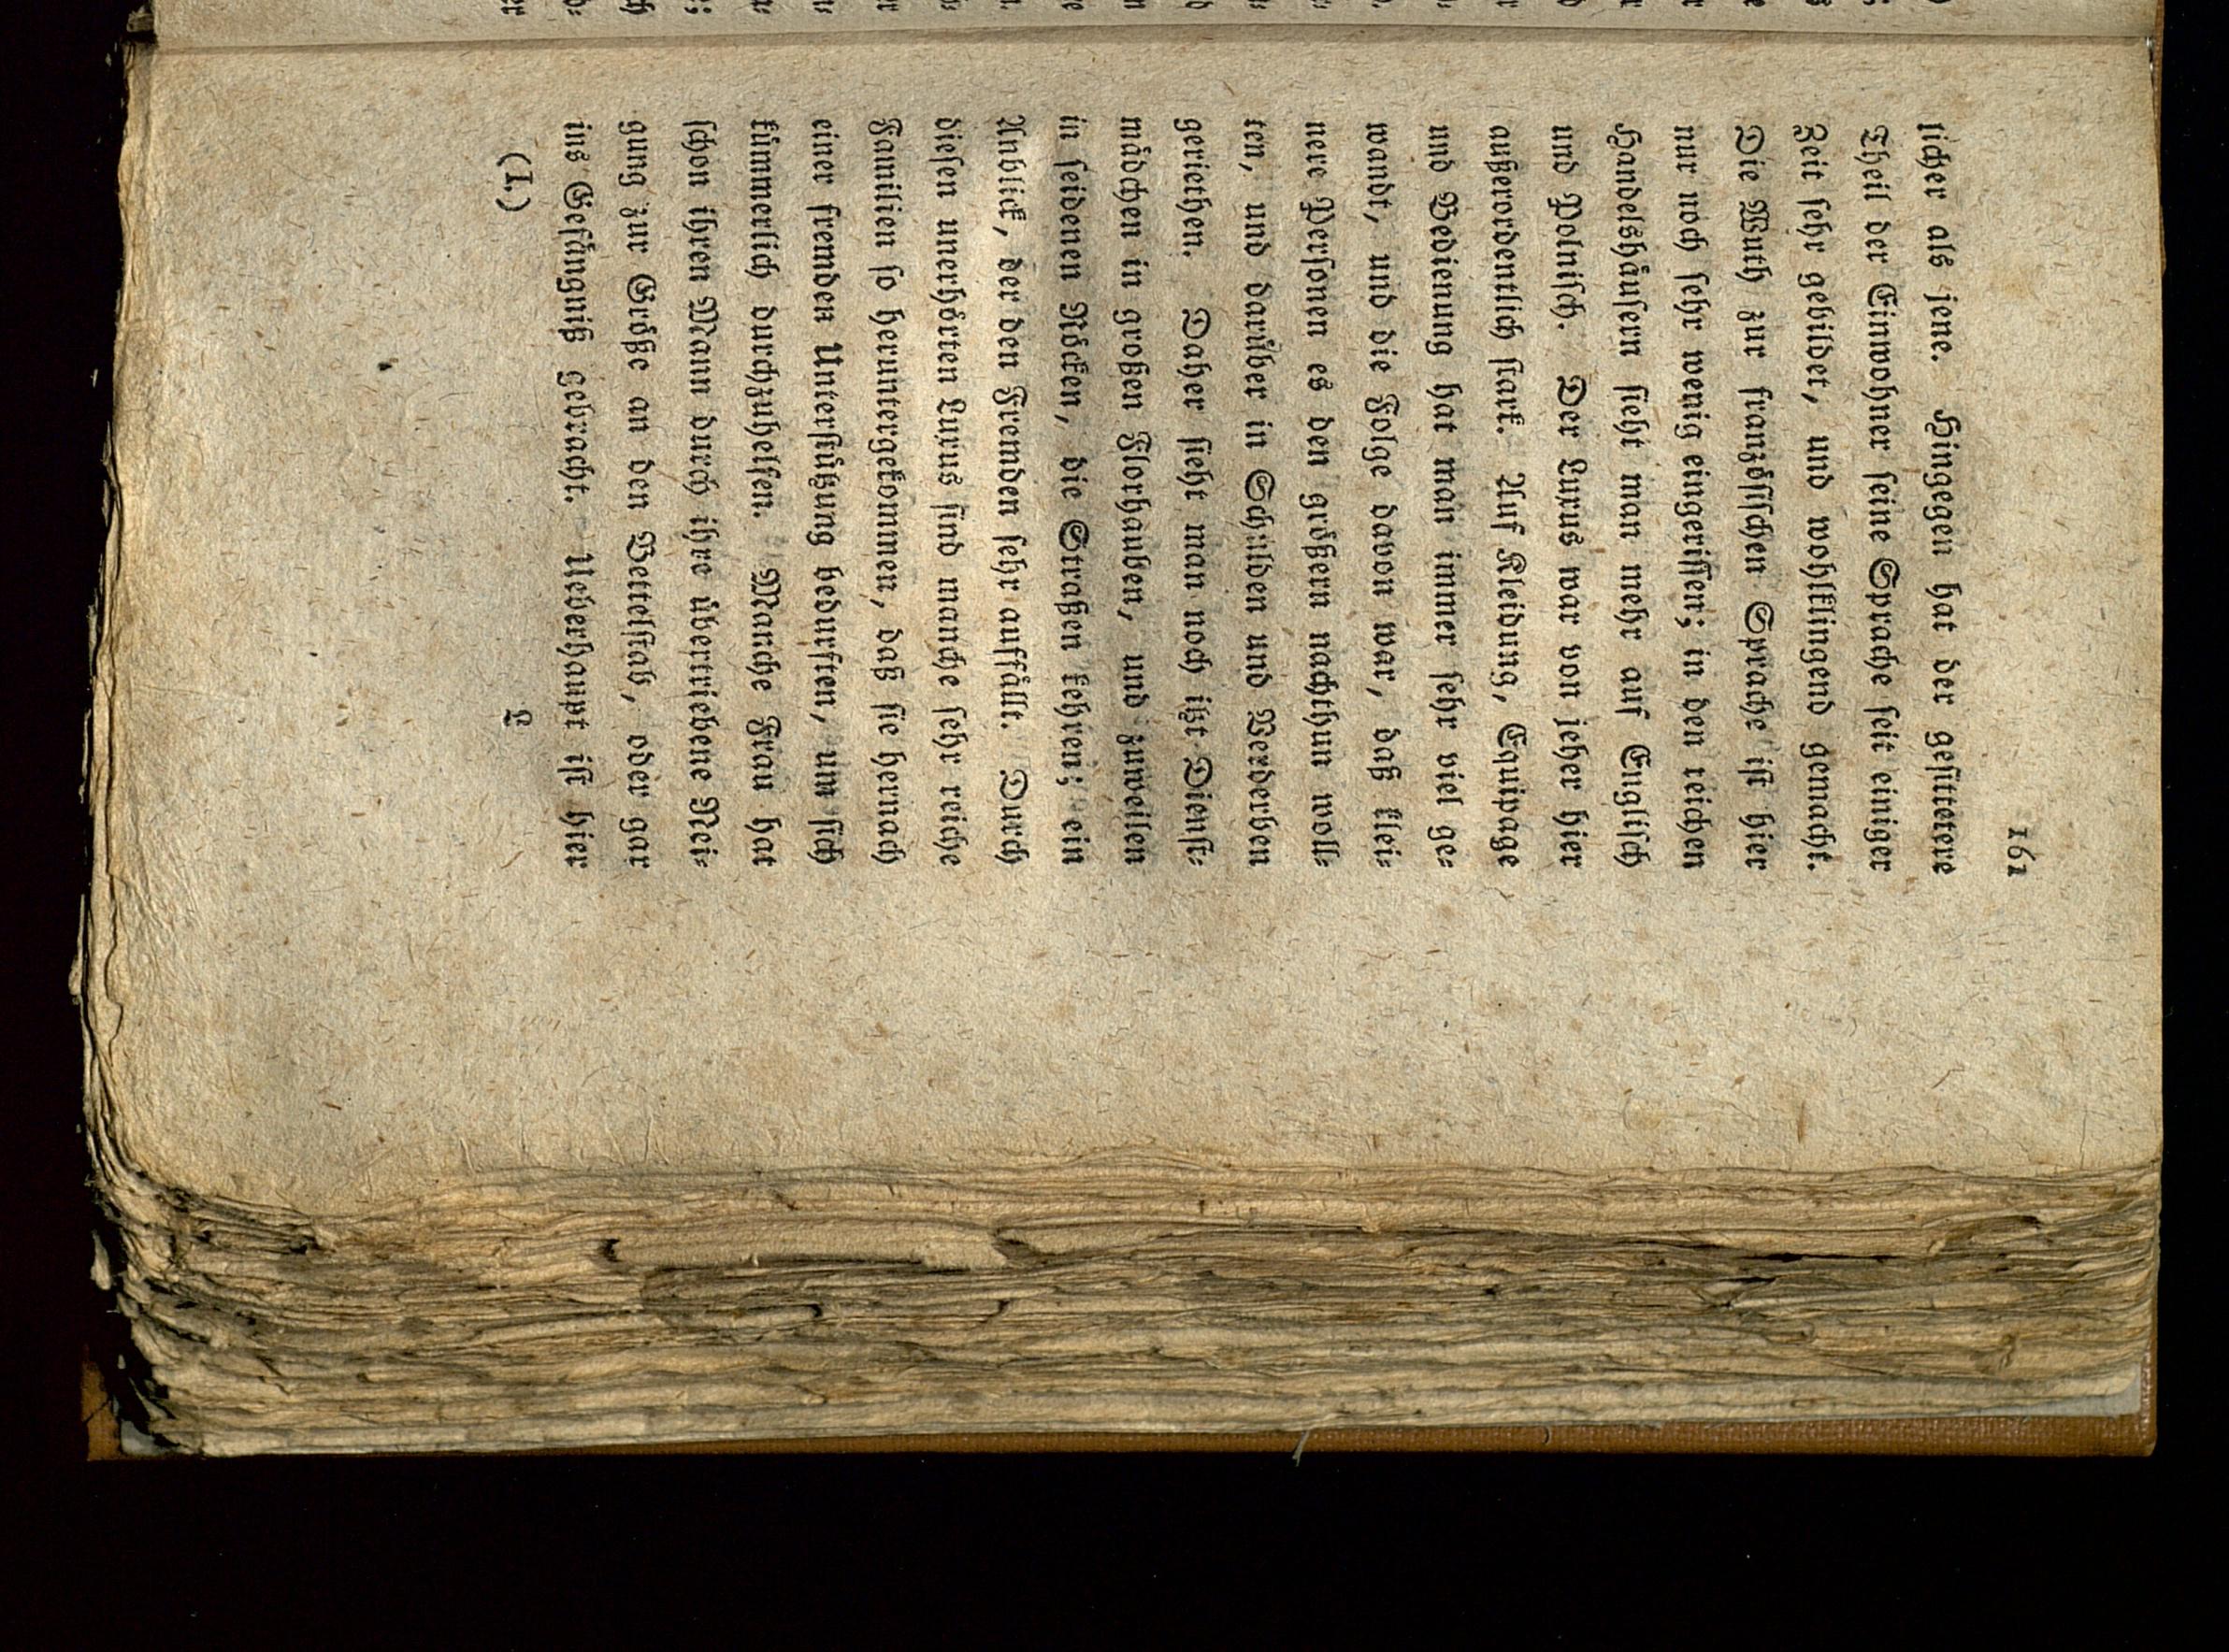 161
licher als jene. Hingegen hat der gesittetere
Theil der Einwohner seine Sprache seit einiger
Zeit sehr gebildet, und wohlklingend gemacht.
Die Wuth zur französischen Sprache ist hier
nur noch sehr wenig eingerissen; in den reichen
Handelshäusern sieht man mehr auf Englisch
und Polnisch. Der Luxus war von jeher hier
außerordentlich stark. Auf Kleidung, Equipage
und Bedienung hat man immer sehr viel ge-
wandt, und die Folge davon war, daß klei-
nere Personen es den größern nachthun woll-
ten, und darüber in Schulden und Verderben
geriethen. Daher sieht man noch itzt Dienst-
mädchen in großen Florhauben, und zuweilen
in seidenen Röcken, die Straßen kehren; ein
Anblick, der den Fremden sehr auffällt. Durch
diesen unerhörten Luxus sind manche sehr reiche
Familien so heruntergekommen, daß sie hernach
einer fremden Unterstützung bedurften, um sich
kümmerlich durchzuhelfen. Manche Frau hat
schon ihren Mann durch ihre übertriebene Nei-
gung zur Größe an den Bettelstab, oder gar
ins Gefängniß gebracht. Ueberhaupt ist hier
(I.) L